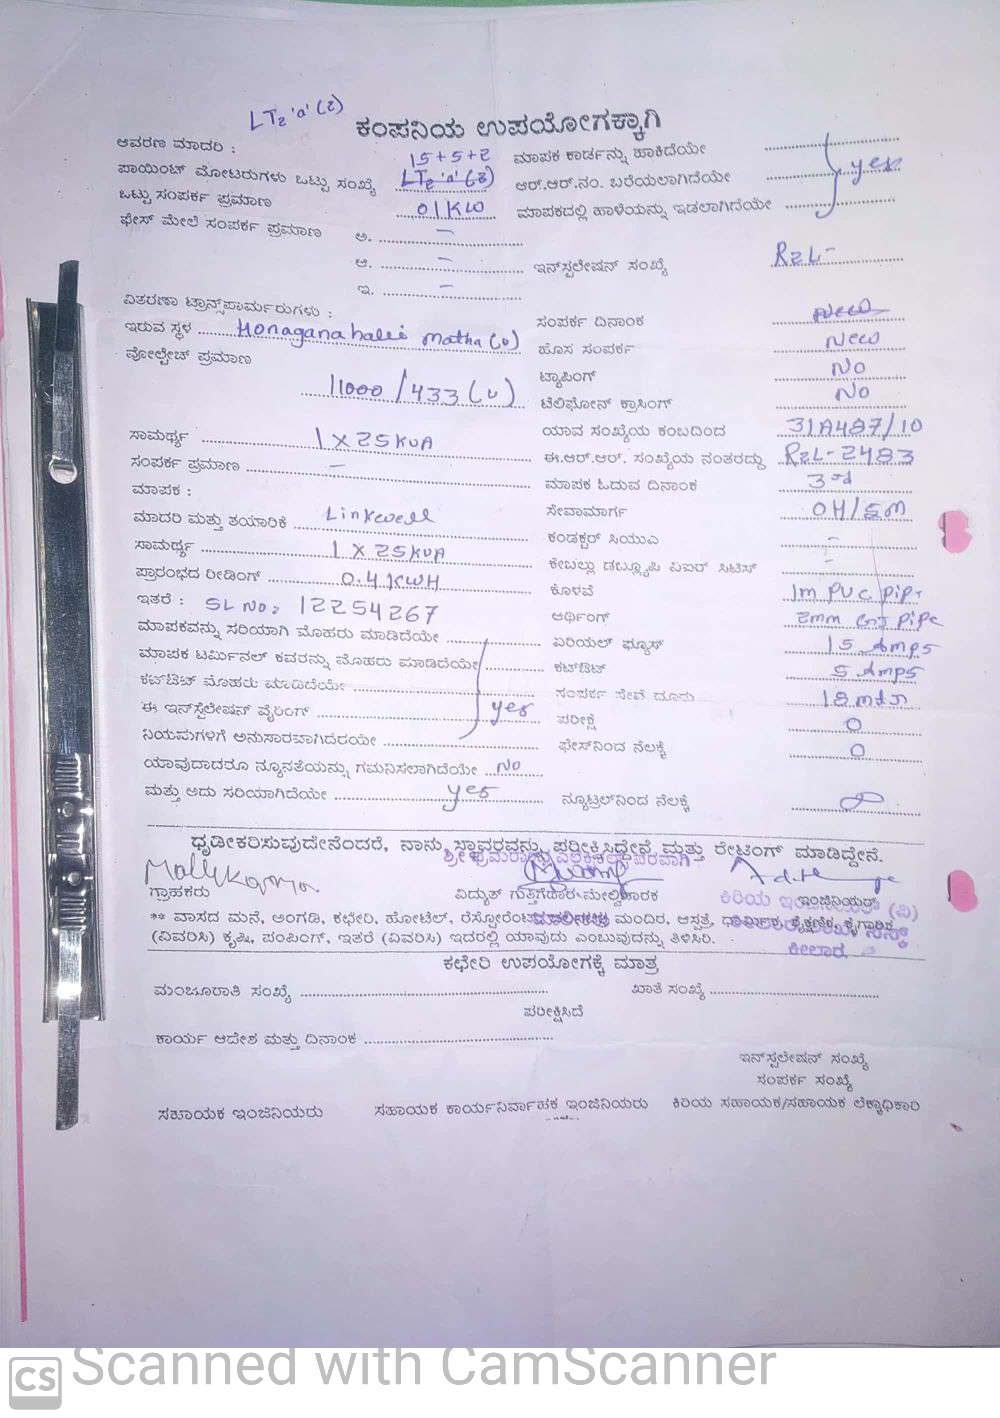 LT2 'a' (2)
ಕಂಪನಿಯ ಉಪಯೋಗಕ್ಕಾಗಿ
ಆವರಣ ಮಾದರಿ : 15+5+2 ಮಾಪಕ ಕಾರ್ಡನ್ನು ಹಾಕಿದೆಯೇ
ಪಾಯಿಂಟ್ ಮೋಟರುಗಳು ಒಟ್ಟು ಸಂಖ್ಯೆ LT2 'a' ಆರ್.ಆರ್.ನಂ. ಬರೆಯಲಾಗಿದೆಯೇ yes
ಒಟ್ಟು ಸಂಪರ್ಕ ಪ್ರಮಾಣ 01KW ಮಾಪಕದಲ್ಲಿ ಹಾಳೆಯನ್ನು ಇಡಲಾಗಿದೆಯೇ
ಫೇಸ್ ಮೇಲೆ ಸಂಪರ್ಕ ಪ್ರಮಾಣ ಅ. –
ಆ. – ಇನ್‌ಸ್ಟಲೇಷನ್ ಸಂಖ್ಯೆ RZL-
ಇ. –
ವಿತರಣಾ ಟ್ರಾನ್ಸ್‌ಫಾರ್ಮರುಗಳು : ಸಂಪರ್ಕ ದಿನಾಂಕ New
ಇರುವ ಸ್ಥಳ Honaganahalli Matha (v) ಹೊಸ ಸಂಪರ್ಕ New
ವೋಲ್ಟೇಜ್ ಪ್ರಮಾಣ ಟ್ಯಾಪಿಂಗ್ No
11000/433 (v) ಟೆಲಿಫೋನ್ ಕ್ರಾಸಿಂಗ್ No
ಸಾಮರ್ಥ್ಯ 1X25KVA ಯಾವ ಸಂಖ್ಯೆಯ ಕಂಬದಿಂದ 31A487/10
ಸಂಪರ್ಕ ಪ್ರಮಾಣ – ಈ.ಆರ್.ಆರ್. ಸಂಖ್ಯೆಯ ನಂತರದ್ದು RZL-2483
ಮಾಪಕ : ಮಾಪಕ ಓದುವ ದಿನಾಂಕ 3rd
ಮಾದರಿ ಮತ್ತು ತಯಾರಿಕೆ Linkwell ಸೇವಾಮಾರ್ಗ OH/SM
ಸಾಮರ್ಥ್ಯ 1X25KVA ಕಂಡಕ್ಟರ್ ಸಿಯುಎ –
ಪ್ರಾರಂಭದ ರೀಡಿಂಗ್ 0.4 KWH ಕೇಬಲ್ಲು ಡಬ್ಲ್ಯೂಪಿ ಪಿಐಆರ್ ಸಿಟಿಸ್ –
ಇತರೆ : SL No: 12254267 ಕೊಳವೆ 1m PVC PiPe
ಮಾಪಕವನ್ನು ಸರಿಯಾಗಿ ಮೊಹರು ಮಾಡಿದೆಯೇ ಅರ್ಥಿಂಗ್ 2mm GI PiPe
ಮಾಪಕ ಟರ್ಮಿನಲ್ ಕವರನ್ನು ಮೊಹರು ಮಾಡಿದೆಯೇ ಏರಿಯಲ್ ಫ್ಯೂಸ್ 15 Amps
ಕಟ್‌ಔಟ್ ಮೊಹರು ಮಾಡಿದೆಯೇ ಕಟ್‌ಔಟ್ 5 Amps
ಈ ಇನ್‌ಸ್ಟಲೇಷನ್ ವೈರಿಂಗ್ yes ಸಂಪರ್ಕ ಸೇವೆ ದೂರು 18 mtr
ನಿಯಮಗಳಿಗೆ ಅನುಸಾರವಾಗಿದೆರಯೇ ಪರೀಕ್ಷೆ 0
ಯಾವುದಾದರೂ ನ್ಯೂನತೆಯನ್ನು ಗಮನಿಸಲಾಗಿದೆಯೇ No ಫೇಸ್‌ನಿಂದ ನೆಲಕ್ಕೆ 0
ಮತ್ತು ಅದು ಸರಿಯಾಗಿದೆಯೇ yes ನ್ಯೂಟ್ರಲ್‌ನಿಂದ ನೆಲಕ್ಕೆ
ಧೃಡೀಕರಿಸುವುದೇನೆಂದರೆ, ನಾನು ಸ್ಥಾವರವನ್ನು ಪರೀಕ್ಷಿಸಿದ್ದೇನೆ ಮತ್ತು ರೇಟಿಂಗ್ ಮಾಡಿದ್ದೇನೆ.
ಗ್ರಾಹಕರು ವಿದ್ಯುತ್ ಗುತ್ತಿಗೆದಾರ ಮೇಲ್ವಿಚಾರಕ ಕಿರಿಯ ಇಂಜಿನಿಯರ್
** ವಾಸದ ಮನೆ, ಅಂಗಡಿ, ಕಛೇರಿ, ಹೋಟೆಲ್, ರೆಸ್ಟೋರೆಂಟ್, ಮಂದಿರ, ಆಸ್ಪತ್ರೆ, ಧಾರ್ಮಿಕ, ಶೈಕ್ಷಣಿಕ, ಕೈಗಾರಿಕೆ
(ವಿವರಿಸಿ) ಕೃಷಿ, ಪಂಪಿಂಗ್, ಇತರೆ (ವಿವರಿಸಿ) ಇದರಲ್ಲಿ ಯಾವುದು ಎಂಬುವುದನ್ನು ತಿಳಿಸಿರಿ.
ಕೀಲಾರ.
ಕಛೇರಿ ಉಪಯೋಗಕ್ಕೆ ಮಾತ್ರ
ಮಂಜೂರಾತಿ ಸಂಖ್ಯೆ ಖಾತೆ ಸಂಖ್ಯೆ
ಪರೀಕ್ಷಿಸಿದೆ
ಕಾರ್ಯ ಆದೇಶ ಮತ್ತು ದಿನಾಂಕ
ಇನ್‌ಸ್ಟಲೇಷನ್ ಸಂಖ್ಯೆ
ಸಂಪರ್ಕ ಸಂಖ್ಯೆ
ಸಹಾಯಕ ಇಂಜಿನಿಯರು ಸಹಾಯಕ ಕಾರ್ಯನಿರ್ವಾಹಕ ಇಂಜಿನಿಯರು ಕಿರಿಯ ಸಹಾಯಕ/ಸಹಾಯಕ ಲೆಕ್ಕಾಧಿಕಾರಿ
CS Scanned with CamScanner